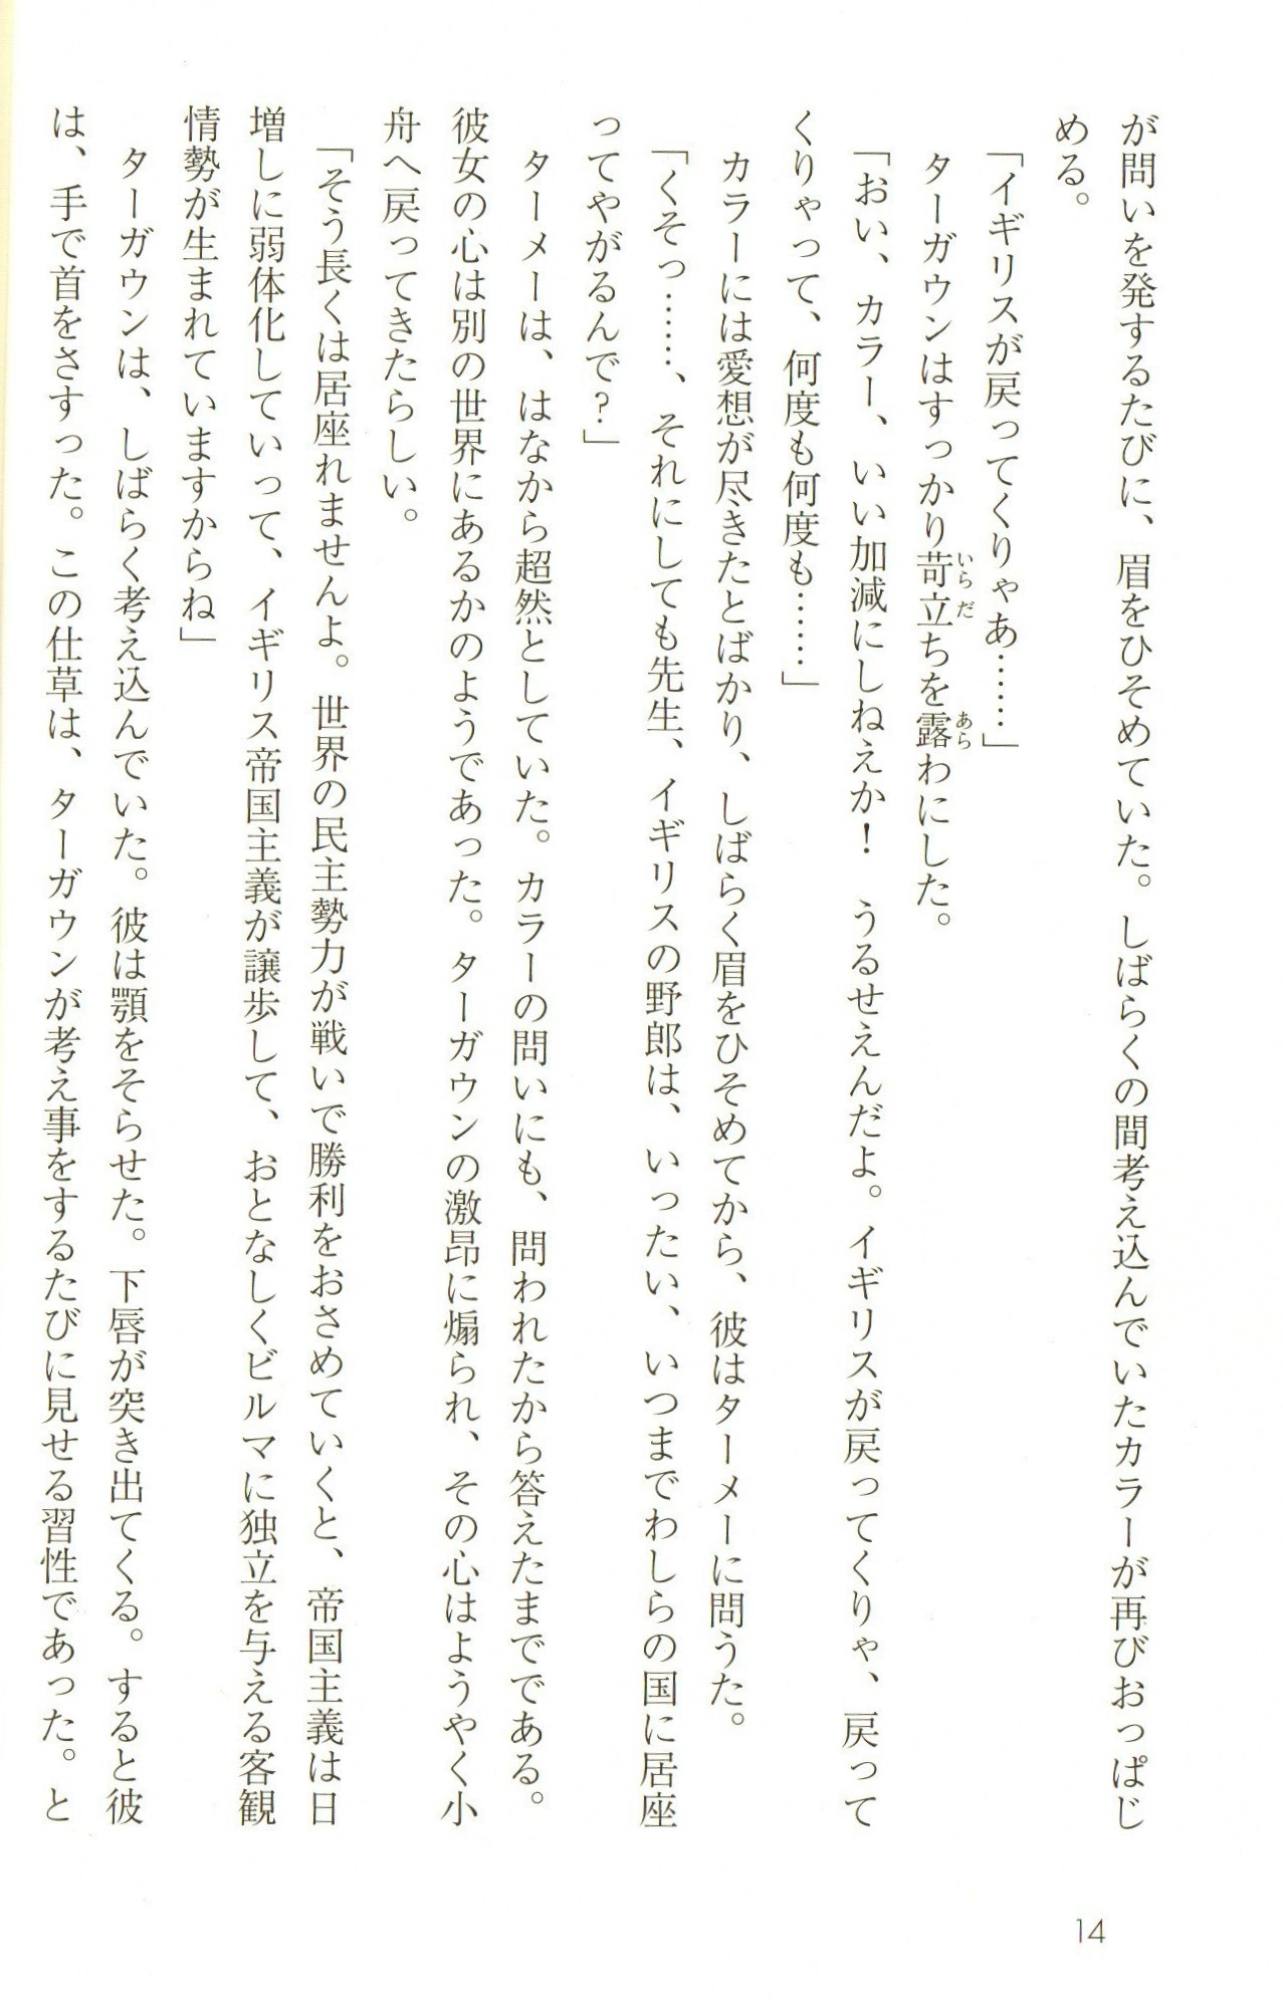 が問いを発するたびに、眉をひそめていた。しばらくの間考え込んでいたカラーが再びおっぱじ
める。
「イギリスが戻ってくりゃあ……」
ターガウンはすっかり苛立ちを露わにした。
「おい、カラー、いい加減にしねえか！　うるせえんだよ。イギリスが戻ってくりゃ、戻って
くりゃって、何度も何度も……」
カラーには愛想が尽きたとばかり、しばらく眉をひそめてから、彼はターメーに問うた。
「くそっ……、それにしても先生、イギリスの野郎は、いったい、いつまでわしらの国に居座
ってやがるんで？」
ターメーは、はなから超然としていた。カラーの問いにも、問われたから答えたまでである。
彼女の心は別の世界にあるかのようであった。ターガウンの激昂に煽られ、その心はようやく小
舟へ戻ってきたらしい。
「そう長くは居座れませんよ。世界の民主勢力が戦いで勝利をおさめていくと、帝国主義は日
増しに弱体化していって、イギリス帝国主義が譲歩して、おとなしくビルマに独立を与える客観
情勢が生まれていますからね」
ターガウンは、しばらく考え込んでいた。彼は顎をそらせた。下唇が突き出てくる。すると彼
は、手で首をさすった。この仕草は、ターガウンが考え事をするたびに見せる習性であった。と
14